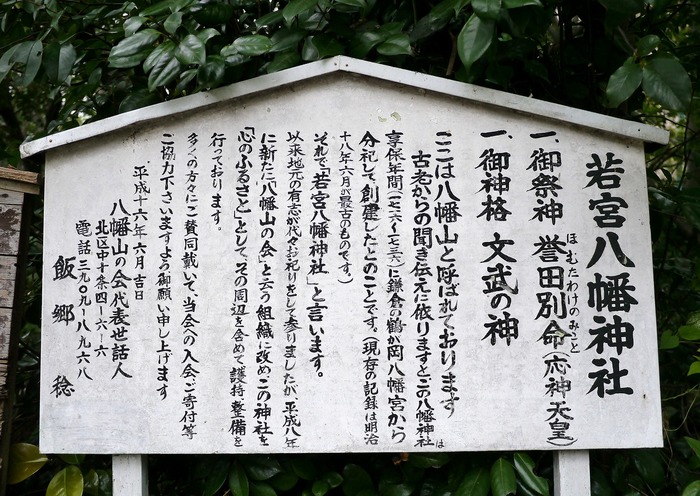 若宮八幡神社
一、御祭神 誉田別命(応神天皇)
ほむたわけのみこと
一、御神格 文武の神
ここは八幡山と呼ばれております
古老からの聞き伝えに依りますとこの八幡神社は
享保年間(一七一六～一七三六)に鎌倉の鶴が岡八幡宮から
分祀して創建したとのことです。(現存の記録は明治
十八年六月が最古のものです。)
それで「若宮八幡神社」と言います。
以来地元の有志が代々お祀りをして参りましたが、平成八年
に新たに「八幡山の会」と云う組織に改め、この神社を
「心のふるさと」として、その周辺を含めて護持、整備を
行っております。
多くの方々にご賛同戴いて、当会の入会、ご寄付等
ご協力下さいますよう御願い申し上げます
平成十六年六月吉日
八幡山の会代表世話人
北区中十条四-六-六
電話三九〇九-八九六八
飯郷 稔